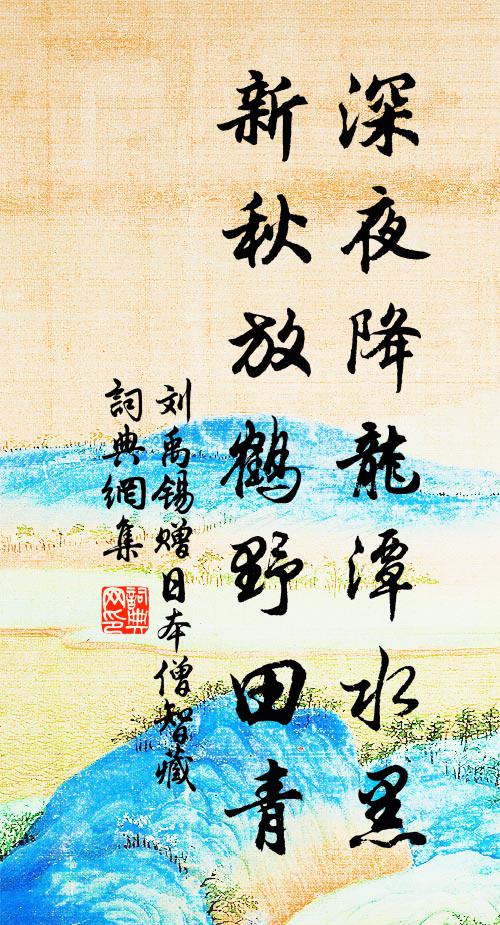 深夜降龍潭水黑
新秋放鶴野田青
刘禹锡赠日本僧智藏
詞典網集
詞典
网印